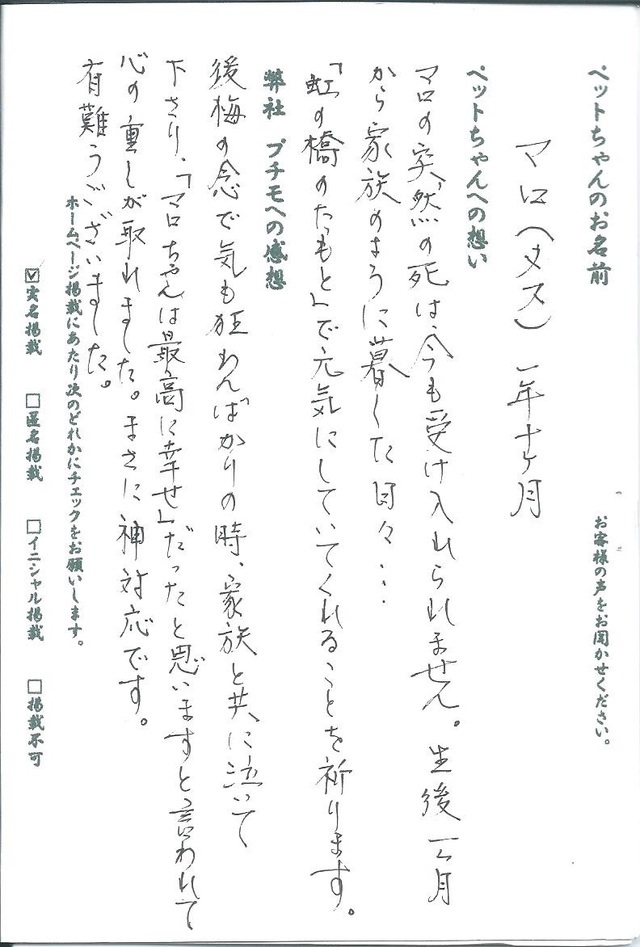 ペットちゃんのお名前
お客様の声をお聞かせください。
マロ(メス) 一年十ヶ月
ペットちゃんへの想い
マロの突然の死は、今も受け入れられません。生後一ヶ月
から家族のように暮した日々・・・
「虹の橋のたもと」で元気にしていてくれることを祈ります。
弊社 プチモへの感想
後悔の念で気も狂わんばかりの時、家族と共に泣いて
下さり、「マロちゃんは最高に幸せ」だったと思いますと言われて
心の重しが取れました。まさに神対応です。
有難うございました。
ホームページ掲載にあたり次のどれかにチェックをお願いします。
☑実名掲載 □匿名掲載 □イニシャル掲載 □掲載不可